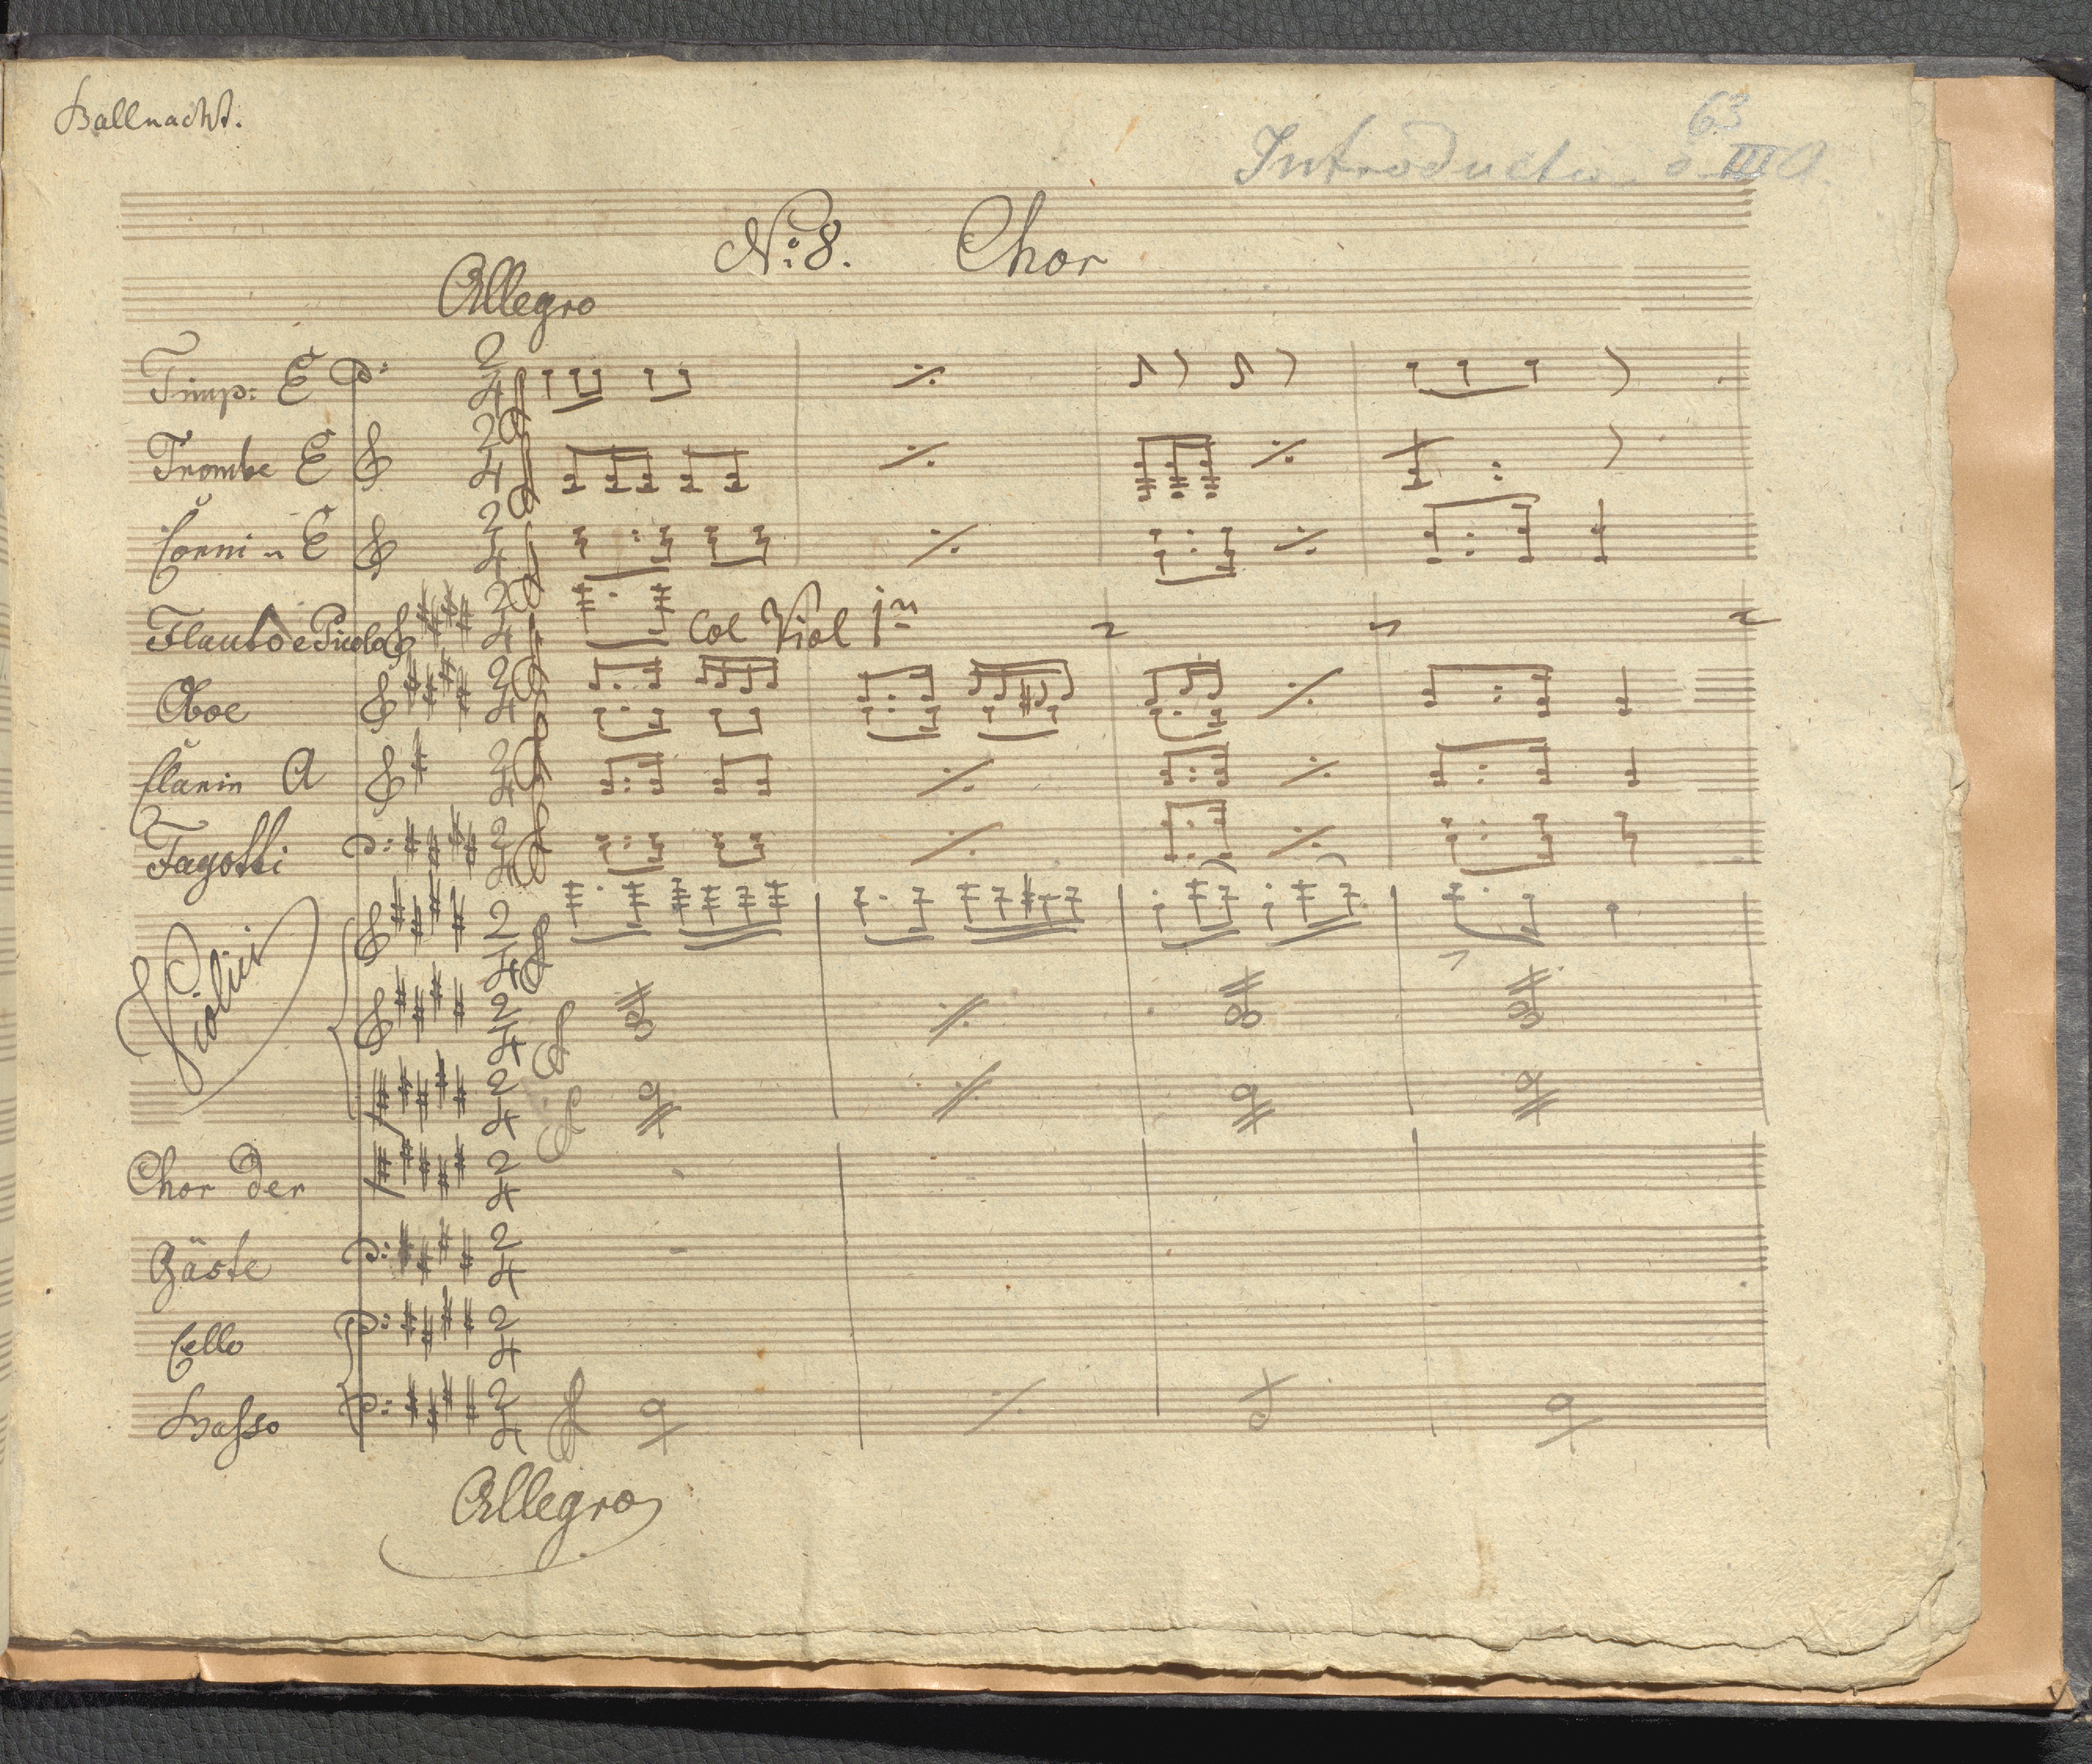 Ballnacht.
63
III A.
No: 8. Chor
Allegro
Timp: E
Trombe E
Corni in E
Flauto e Picolo
col Viol 1mo
Oboe
Clarin A
Fagotti
Violini
Chor der
Gäste
Cello
Basso
Allegro